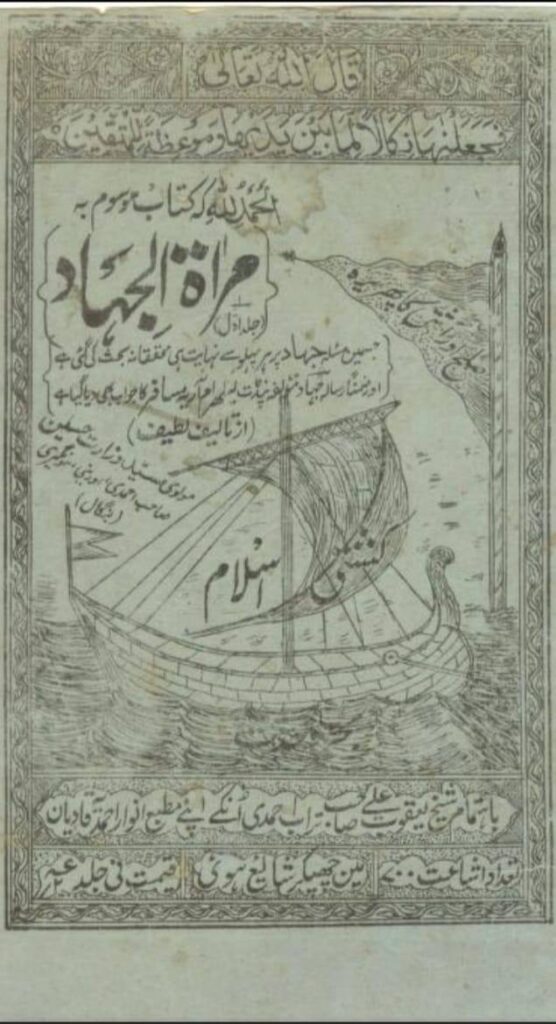 قال اللہ تعالیٰ
فجعلنٰہا نکالاً لما بین یدیہا وموعظۃً للمتقین
الحمد للہ کہ کتاب موسوم بہ
مراٰۃ الجہاد
(جلد اول)
جسمیں مسئلہ جہاد پر ہر پہلو سے نہایت ہی محققانہ بحث کی گئی ہے
اور ضمناً رسالہ جہاد مؤلفہ پنڈت لیکھرام آریہ مسافر کا جواب بھی دیا گیا ہے
(از تالیف لطیف)
مولوی سید وزارت حسین
صاحب احمدی
(بنگال)
کا پھریرہ
کشتی اسلام
باہتمام شیخ یعقوب علی صاحب تراب احمدی اُنکے اپنے مطبع انوار احمدیہ قادیان
میں چھپکر شایع ہوئی
تعداد اشاعت ۷۰۰
قیمت فی جلد